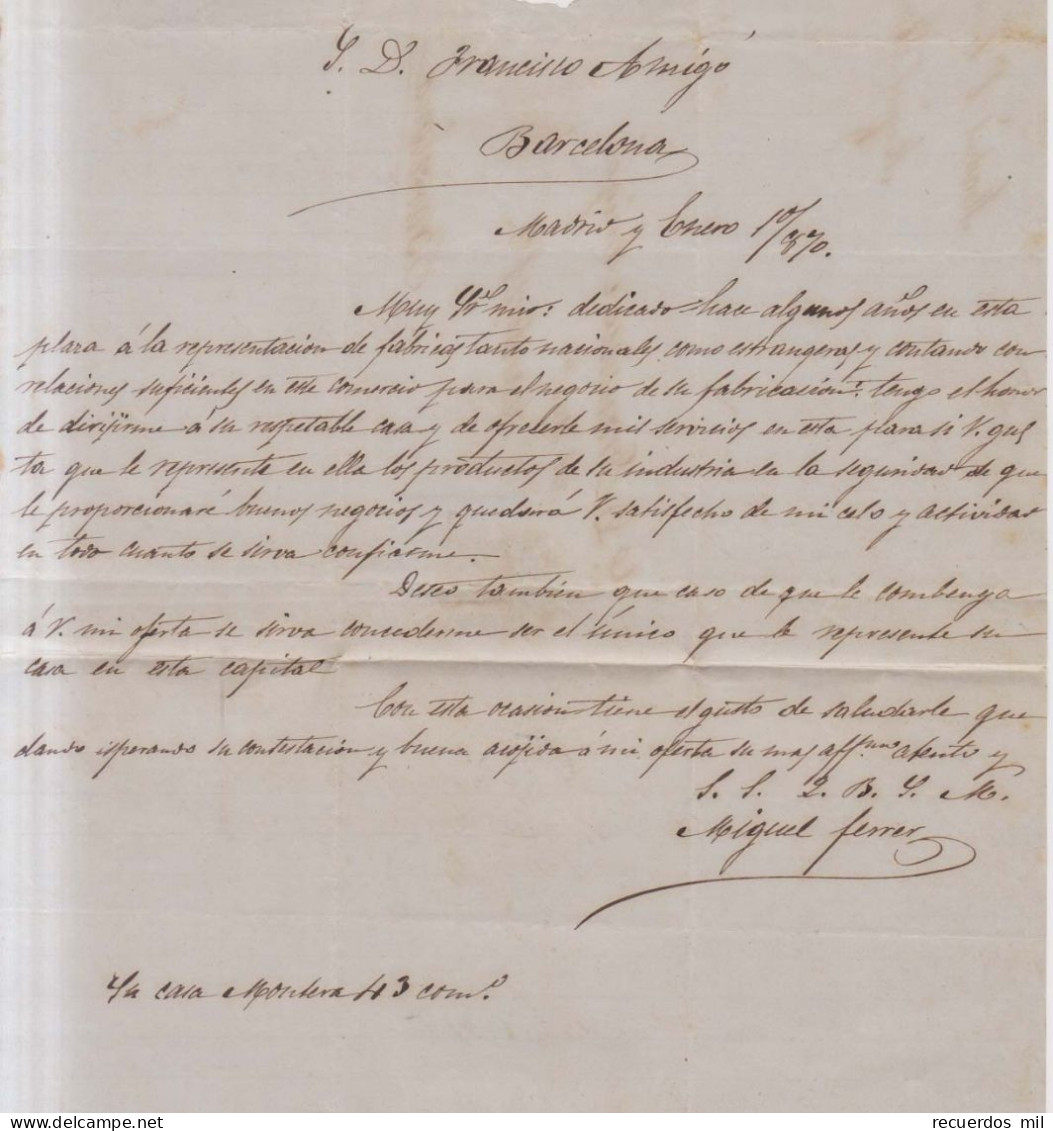 S. D. Francisco Amigó
Barcelona
Madrid y Enero 10/870.
Muy Sr mio: dedicado hace algunos años en esta
plaza á la representacion de fabricas tanto nacionales como estrangeras y contando con
relaciones suficientes en este comercio para el negocio de su fabricacion: tengo el honor
de dirijirme á su respetable casa y de ofrecerle mis servicios en esta plaza si V. gus
ta que le represente en ella los productos de su industria en la seguridad de que
le proporcionaré buenos negocios y quedará V. satisfecho de mi celo y actividad
en todo cuanto se sirva confiarme.
Deseo tambien que caso de que le combenga
á V. mi oferta se sirva concederme ser el único que le represente su
casa en esta capital
Con esta ocasion tiene el gusto de saludarle que
dando isperando su contestacion y buena acojida á mi oferta su mas aff.mo atento y
S. S. Q. B. S. M.
Miguel ferrer
Su casa Montera 43 com.o
recuerdos mil